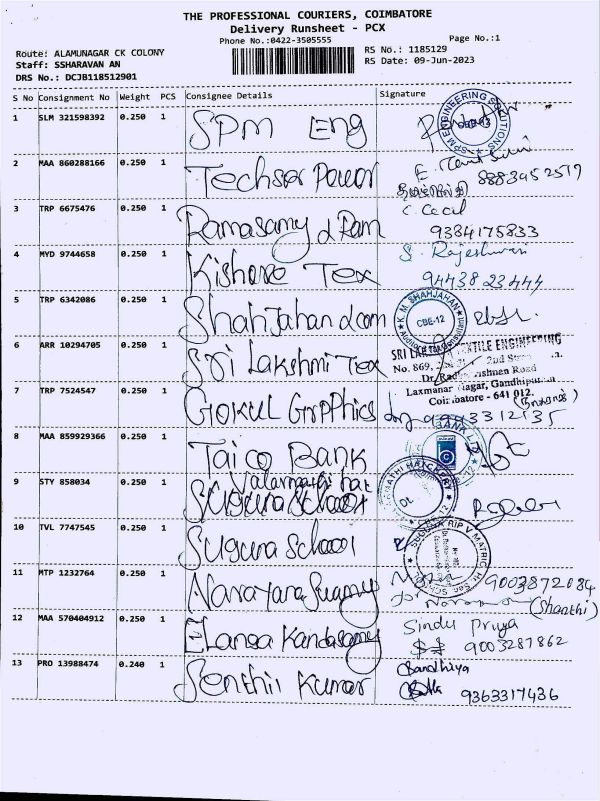 THE PROFESSIONAL COURIERS, COIMBATORE
Delivery Runsheet - PCX
Phone No.:0422-3505555
Page No.:1
Route: ALAMUNAGAR CK COLONY
RS No.: 1185129
Staff: SSHARAVAN AN
RS Date: 09-Jun-2023
DRS No.: DCJB118512901
S No Consignment No Weight PCS Consignee Details Signature
1 SLM 321598392 0.250 1 SPM Eng
SPM ENGINEERING SOLUTIONS
2 MAA 860288166 0.250 1 Techser Power
8883452519
3 TRP 6675476 0.250 1 Ramasamy & Ram C. Cecil
9384175833
4 MYD 9744658 0.250 1 Kishore Tex S. Rajeshwari
94438 23444
5 TRP 6342086 0.250 1 Shahjahan & com
K. M. SHAHJAHAN
CBE-12
6 ARR 10294705 0.250 1 Sri Lakshmi Tex
SRI TEXTILE ENGINEERING
No. 869, 2nd
Dr. Road
Laxmanar Nagar, Gandhipuram
Coimbatore - 641 012.
7 TRP 7524547 0.250 1 Gokul Grpphics
9993312135
8 MAA 859929366 0.250 1 Taico Bank
BANK LTD
9 STY 858034 0.250 1 Valarmathi hat
Suguna School
HATCHERY
CBE-12
10 TVL 7747545 0.250 1 Suguna School
SUGUNA RIP V MATRIC Hr. Sec. SCHOOL
11 MTP 1232764 0.250 1 Narayana Swamy
9003872084
(Shanthi)
12 MAA 570404912 0.250 1 Elanga Kandasamy Sindu Priya
9003287862
13 PRO 13988474 0.240 1 Senthil Kumar Sandhiya
9363317436